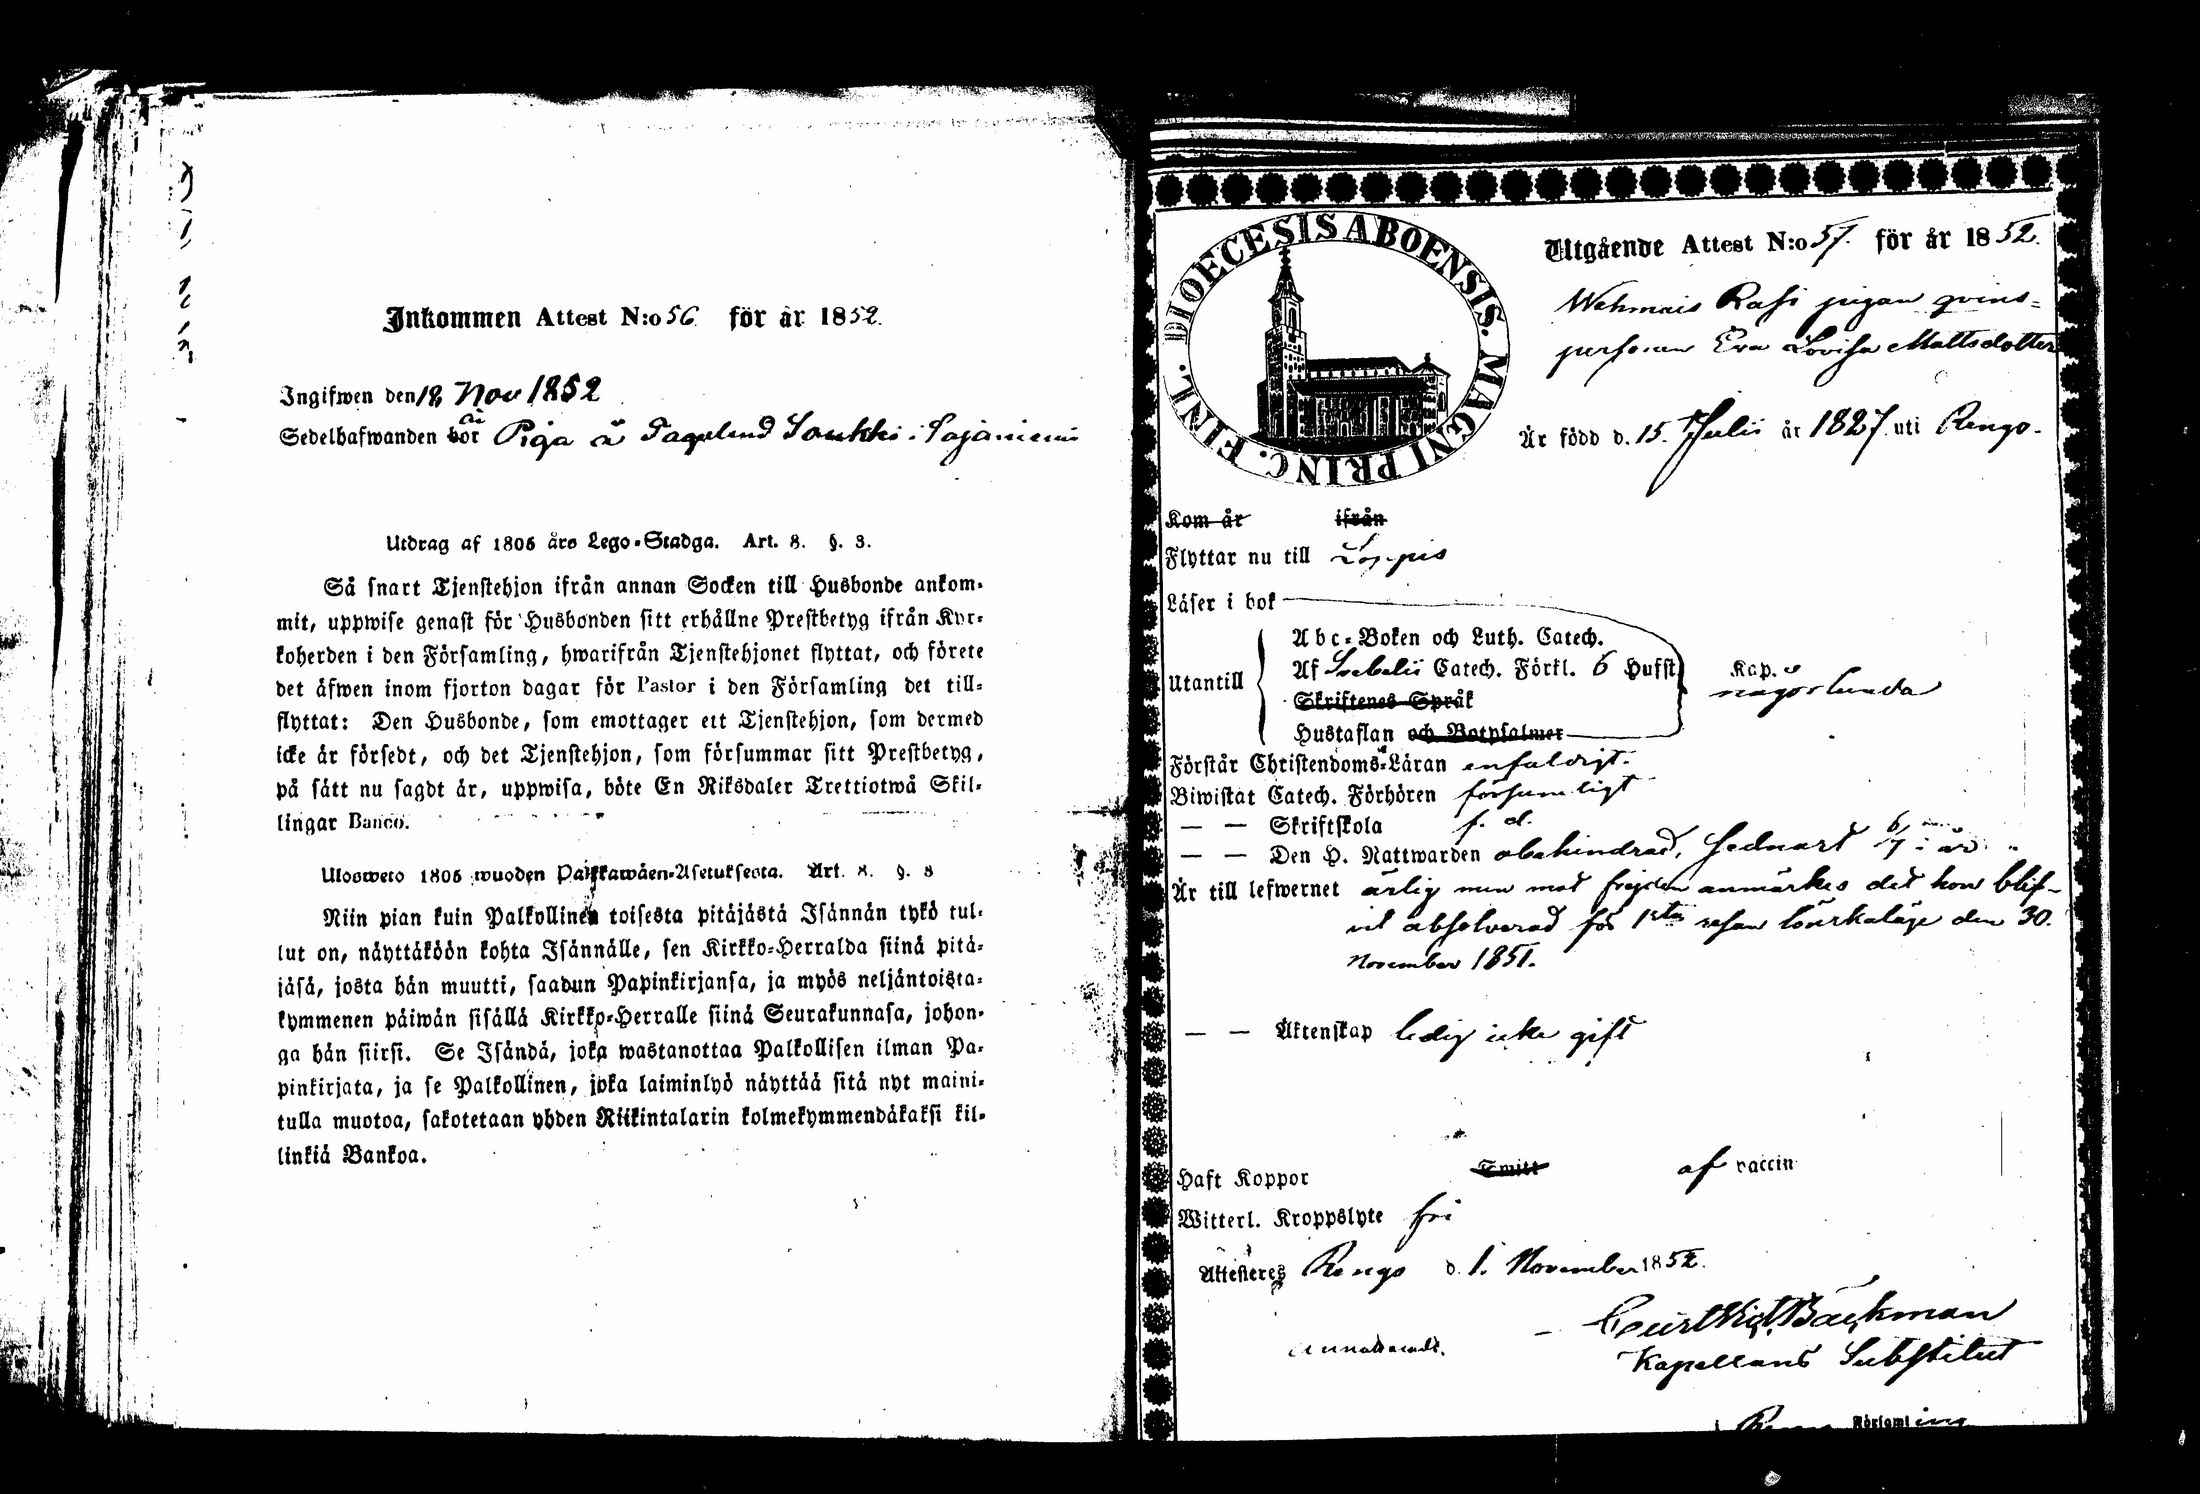 Inkommen Attest N:o 56 för år 1852.
Ingifwen den 18 Nov 1852
Sedelhafwanden bor är Piga å i Sajaniemi
Utdrag af 1805 års Lego-Stadga. Art. 8. §. 3.
Så snart Tjenstehjon ifrån annan Socken till Husbonde ankom-
mit, uppwise genast för Husbonden sitt erhållne Prestbetyg ifrån Kyr-
koherden i den Församling, hwarifrån Tjenstehjonet flyttat, och förete
det äfwen inom fjorton dagar för Pastor i den Församling det till-
flyttat: Den Husbonde, som emottager ett Tjenstehjon, som dermed
icke är försedt, och det Tjenstehjon, som försummar sitt Prestbetyg,
på sätt nu sagdt är, uppwisa, böte En Riksdaler Trettiotwå Skil-
lingar Banco.
Ulosweto 1805 wuoden Palkkawäen-Asetuksesta. Art. 8. §. 3
Niin pian kuin Palkollinen toisesta pitäjästä Isännän tykö tul-
lut on, näyttäköön kohta Isännälle, sen Kirkko-Herralda siinä pitä-
jäsä, josta hän muutti, saadun Papinkirjansa, ja myös neljäntoista-
kymmenen päiwän sisällä Kirkko-Herralle siinä Seurakunnasa, johon-
ga hän siirsi. Se Isändä, joka wastanottaa Palkollisen ilman Pa-
pinkirjata, ja se Palkollinen, joka laiminlyö näyttää sitä nyt maini-
tulla muotoa, sakotetaan yhden Riikintalarin kolmekymmendäkaksi kil-
linkiä Bankoa.
DIOECESIS ABOENSIS. MAGNI PRINC. FINL.
Utgående Attest N:o 57. för år 1852.
Wehmais Rasi pigan qvins-
personen Eva Lovisa Mattsdotter
Är född d. 15. Julii år 1827. uti Rengo.
Kom år ifrån
Flyttar nu till Loppis
Läser i bok
Abc-Boken och Luth. Catech.
Utantill Af Svebelii Catech. Förkl. 6 Hufst. Kap.
någorlunda
Skriftenes Språk
Hustaflan och Botpsalmer
Förstår Christendoms-Läran enfaldigt.
Biwistat Catech. Förhören försumligt
— — Skriftskola f. d.
— — Den H. Nattwarden obehindrad, sednast i år
Är till lefwernet ärlig men mot frejden anmärkes det hon blif-
vit absolverad för 1sta resan lönskaläge den 30.
November 1851.
— — Äktenskap ledig icke gift
Haft Koppor Smitt af vaccin
Witterl. Kroppslyte fri
Attesteres Rengo d. 1. November 1852.
Bäckman
Kapellans Substitut
Församl